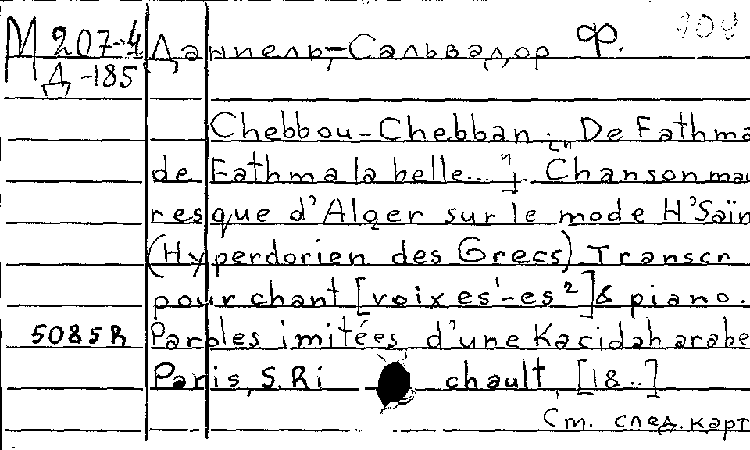 М 207-4 Даниель-Сальвадор Ф.
Д-185
Chebbou-Chebban : De Fathma
de Fathma la belle... Chanson mau
resque d'Alger sur le mode H'Saïn
(Hyperdorien des Grecs) Transcr
pour chant [voix es¹-es²] & piano.
5085R Paroles imitées d'une Kacidah arabe
Paris, S. Richault, [18..]
См. след. карт